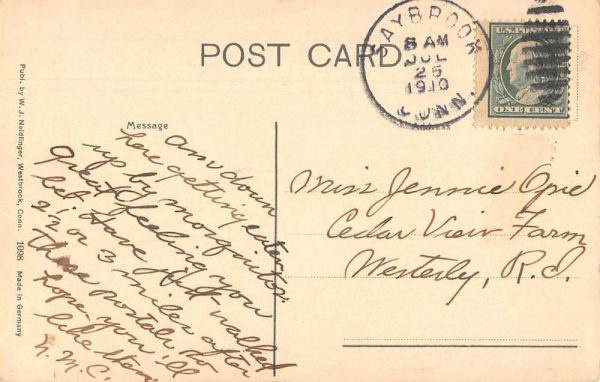 POST CARD.
SAYBROOK
8 AM
JUL
25
1910
CONN.
U.S. POSTAGE
ONE CENT
Message
Address
Am down
here getting eaten
up by mosquitos
great feeling you
bet have just walked
2 1/2 or 3 miles after
these postals so
hope you'll
like them
N.M.C.
Miss Jennie Opie
Cedar View Farm
Westerly, R.I.
Publ. by W. J. Neidlinger, Westbrook, Conn. 1098 Made in Germany